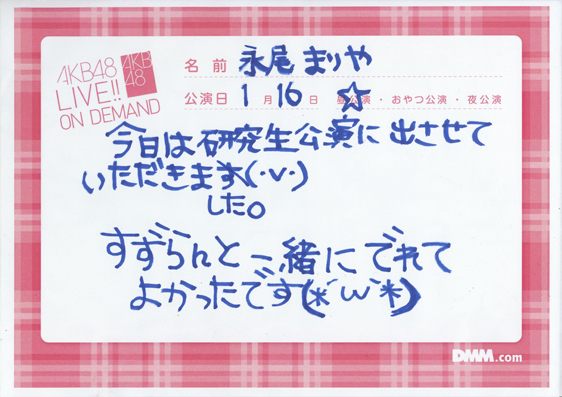 AKB48
LIVE!!
ON DEMAND
AKB
48
名前 永尾まりや
公演日 1月16日 ☆公演・おやつ公演・夜公演
今日は研究生公演に出させて
いただきます(・v・)
した。
すずらんと一緒にでれて
よかったです(*´ω`*)
DMM.com